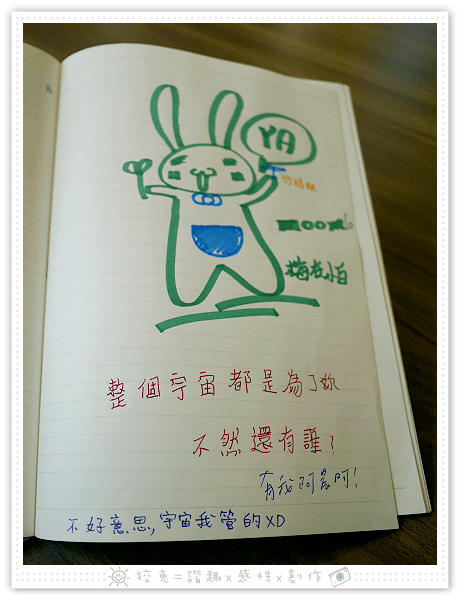 YA
moomilo
梅我怕
整個宇宙都是為了妳
不然還有誰?
有我阿晨阿!
不好意思,宇宙我管的XD
狡兔=諧趣x感性x創作